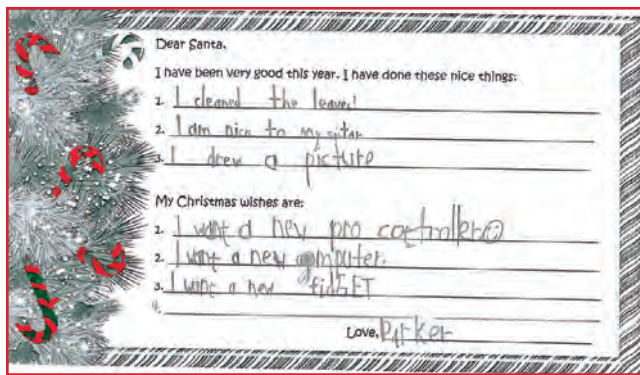 Dear Santa,
I have been very good this year. I have done these nice things:
1. I cleaned the leaves
2. I am nice to my sister
3. I drew a picture
My Christmas wishes are:
1. I want a new pro controller☺
2. I want a new computer.
3. I want a new fidGET
4.
Love, Parker